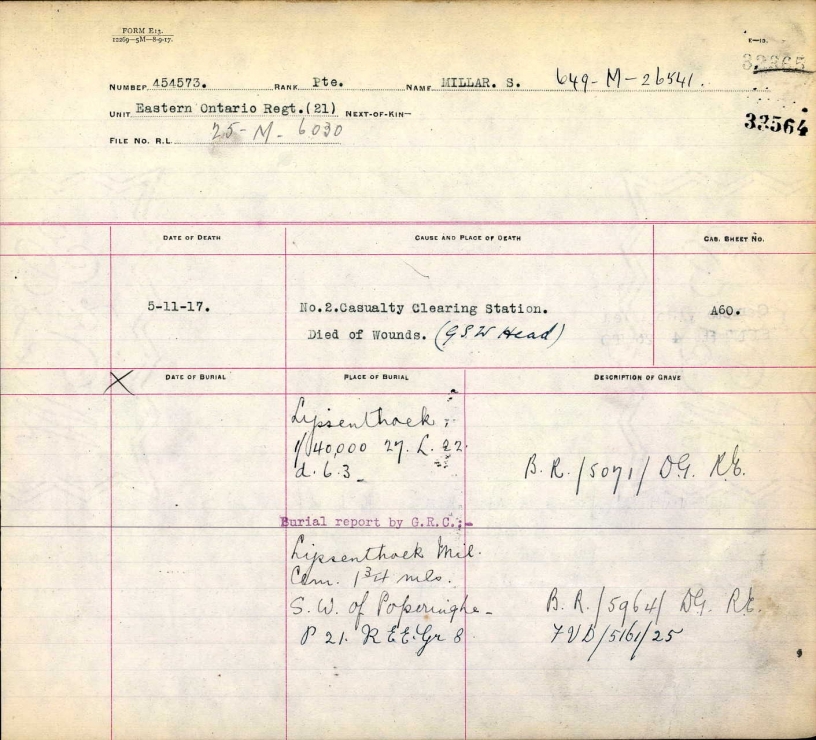 FORM E13.
12269—5M—8-9-17.
E—13.
32365
NUMBER 454573. RANK Pte. NAME MILLAR. S. 649-M-26541.
UNIT Eastern Ontario Regt.(21) NEXT-OF-KIN—
32564
FILE NO. R.L. 25-M-6030
DATE OF DEATH CAUSE AND PLACE OF DEATH CAS. SHEET NO.
5-11-17. No.2.Casualty Clearing Station. A60.
Died of Wounds. (GSW Head)
X DATE OF BURIAL PLACE OF BURIAL DESCRIPTION OF GRAVE
Lijssenthoek
1/40,000 27. L. 22.
d. 6.3_ B.R./5071/DG. RE.
Burial report by G.R.C.:-
Lijssenthoek Mil.
Cem. 1 3/4 mls.
S.W. of Poperinghe_ B.R./5964/DG. RE.
P 21. R EE. Gr 8 FVD/5161/25